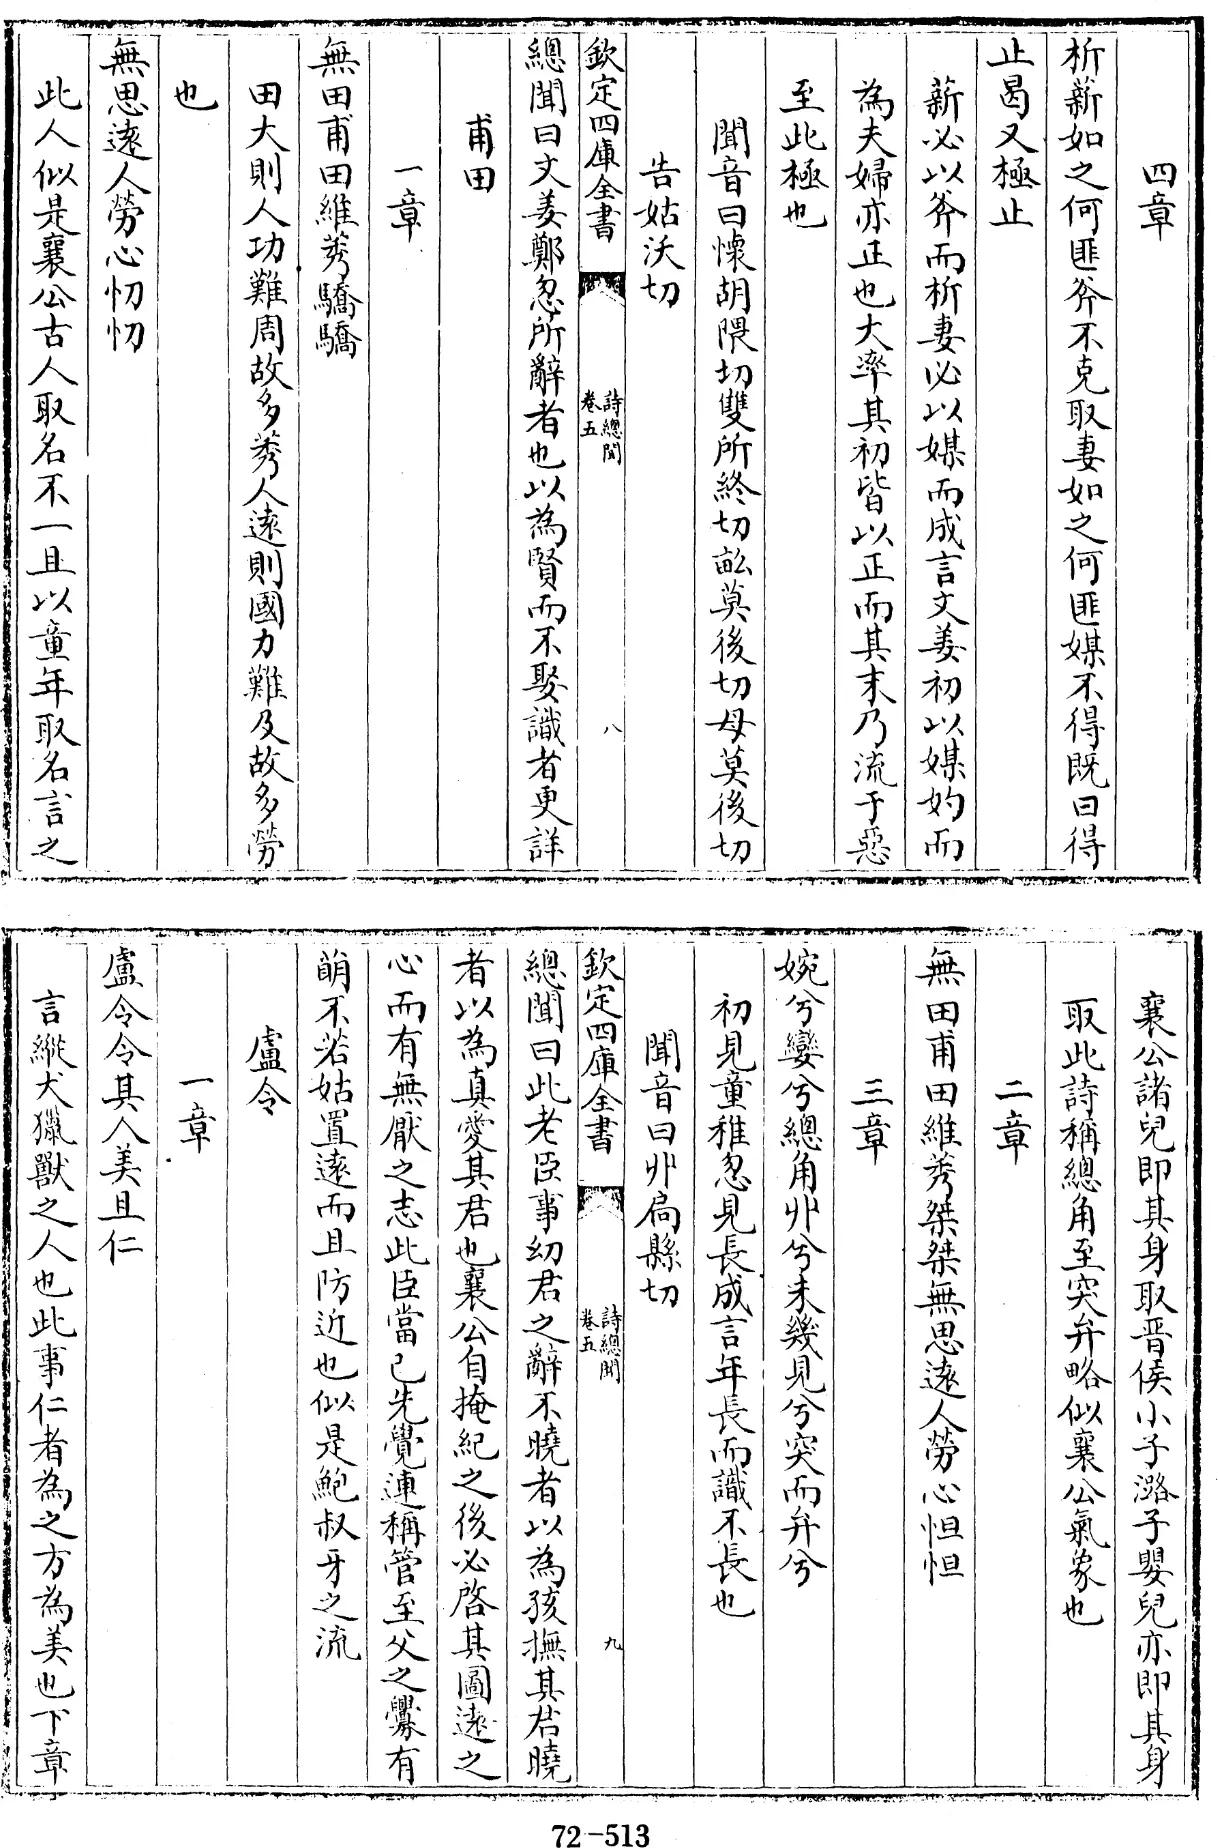 四章
析薪如之何匪斧不克取妻如之何匪媒不得既曰得
止曷又極止
薪必以斧而析妻必以媒而成言文姜初以媒妁而
為夫婦亦正也大率其初皆以正而其末乃流于惡
至此極也
聞音曰懷胡隈切雙所終切畝莫後切母莫後切
告姑沃切
欽定四庫全書
詩總聞
卷五
八
總聞曰文姜鄭忽所辭者也以為賢而不娶識者更詳
甫田
一章
無田甫田維莠驕驕
田大則人功難周故多莠人遠則國力難及故多勞
也
無思遠人勞心忉忉
此人似是襄公古人取名不一且以童年取名言之
襄公諸兒即其身取晉侯小子潞子嬰兒亦即其身
取此詩稱總角至突弁略似襄公氣象也
二章
無田甫田維莠桀桀無思遠人勞心怛怛
三章
婉兮孌兮總角丱兮未幾見兮突而弁兮
初見童稚忽見長成言年長而識不長也
聞音曰丱局縣切
欽定四庫全書
詩總聞
卷五
九
總聞曰此老臣事幼君之辭不曉者以為孩撫其君曉
者以為真愛其君也襄公自掩紀之後必啓其圖遠之
心而有無厭之志此臣當已先覺連稱管至父之釁有
萌不若姑置遠而且防近也似是鮑叔牙之流
盧令
一章
盧令令其人美且仁
言縱犬獵獸之人也此事仁者為之方為美也下章
72-513